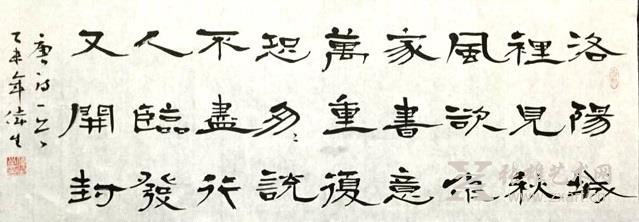 洛陽城
裡見秋
風欲作
家書意
萬重復
恐匆〻說
不盡行
人臨發
又開封
唐诗一首
乙未年
艺术网